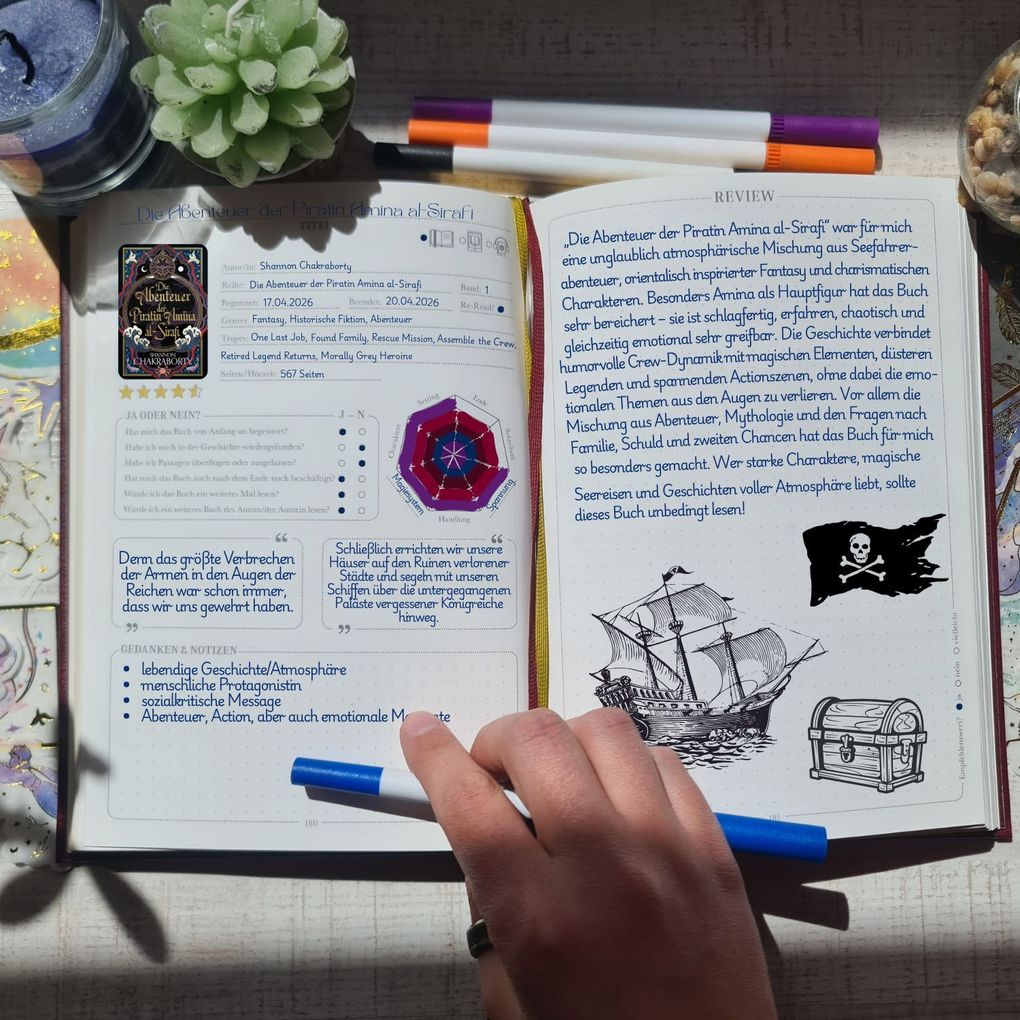 Die Abenteuer der Piratin Amina al-Sirafi
TITEL
Die
Abenteuer
der
Piratin Amina
al-Sirafi
SHANNON
CHAKRABORTY
Autor/in: Shannon Chakraborty
Reihe: Die Abenteuer der Piratin Amina al-Sirafi Band: 1
Begonnen: 17.04.2026 Beendet: 20.04.2026 Re-Read?
Genre: Fantasy, Historische Fiktion, Abenteuer
Tropes: One Last Job, Found Family, Rescue Mission, Assemble the Crew,
Retired Legend Returns, Morally Grey Heroine
Seiten/Hörzeit: 567 Seiten
JA ODER NEIN? J – N
Hat mich das Buch von Anfang an begeistert?
Habe ich mich in der Geschichte wiedergefunden?
Habe ich Passagen überflogen oder ausgelassen?
Hat mich das Buch auch nach dem Ende noch beschäftigt?
Würde ich das Buch ein weiteres Mal lesen?
Würde ich ein weiteres Buch des Autors/der Autorin lesen?
Setting
Ende
Charaktere
Schreibstil
Magiesystem
Spannung
Handlung
Denn das größte Verbrechen
der Armen in den Augen der
Reichen war schon immer,
dass wir uns gewehrt haben.
Schließlich errichten wir unsere
Häuser auf den Ruinen verlorener
Städte und segeln mit unseren
Schiffen über die untergegangenen
Paläste vergessener Königreiche
hinweg.
GEDANKEN & NOTIZEN
• lebendige Geschichte/Atmosphäre
• menschliche Protagonistin
• sozialkritische Message
• Abenteuer, Action, aber auch emotionale
180
REVIEW
„Die Abenteuer der Piratin Amina al-Sirafi“ war für mich
eine unglaublich atmosphärische Mischung aus Seefahrer-
abenteuer, orientalisch inspirierter Fantasy und charismatischen
Charakteren. Besonders Amina als Hauptfigur hat das Buch
sehr bereichert – sie ist schlagfertig, erfahren, chaotisch und
gleichzeitig emotional sehr greifbar. Die Geschichte verbindet
humorvolle Crew-Dynamik mit magischen Elementen, düsteren
Legenden und spannenden Actionszenen, ohne dabei die emo-
tionalen Themen aus den Augen zu verlieren. Vor allem die
Mischung aus Abenteuer, Mythologie und den Fragen nach
Familie, Schuld und zweiten Chancen hat das Buch für mich
so besonders gemacht. Wer starke Charaktere, magische
Seereisen und Geschichten voller Atmosphäre liebt, sollte
dieses Buch unbedingt lesen!
Empfehlenswert? ja nein vielleicht
181